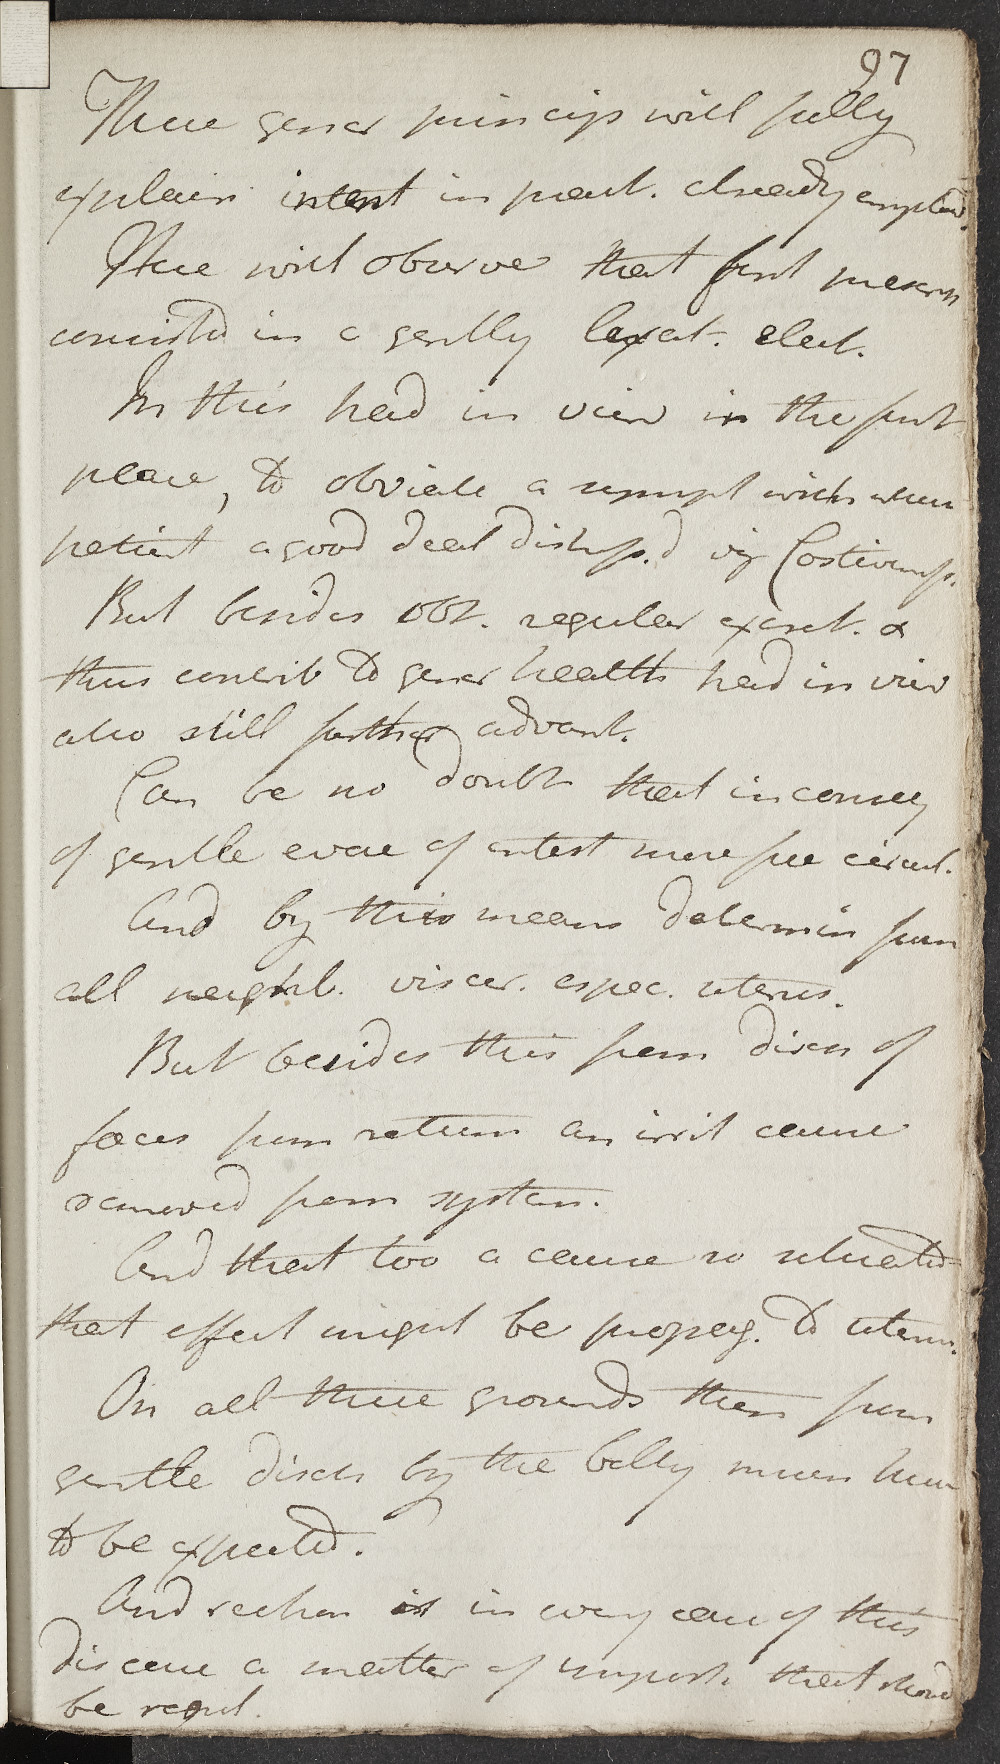 97
These gener princips will fully
explain intent in pract. already employd.
Here will observe that first prescrn
consistd in a gently laxat. elect.
In this had in view in the first
place, to obviate a sympt with whn
patient a good deal distress.d viz Costiveness.
But besides obt. regular excret. &
thus contrib to gener health had in view
also still farther advant.
Can be no doubt that in conseq
of gentle evac of intest more free circul.
And by this means determin from
all neighb. viscer. espec. uterus.
But besides this from disch of
faeces from rectum an irrit cause
removed from system.
And that too a cause so situated
that effect might be propag. to uterus.
On all these grounds then from
gentle disch by the belly much here
to be expected.
And reckon it in every case of this
disease a matter of import. that should
be regul.